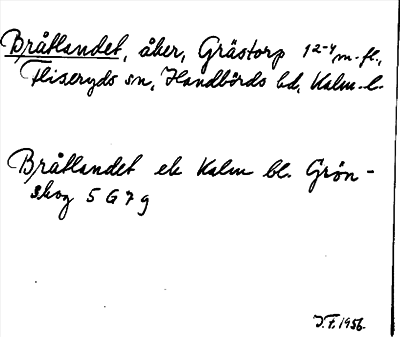 Bråtlandet, åker, Grästorp 1 2-4 m. fl.,
Fliseryds sn, Handbörds hd, Kalm. l.
Bråtlandet ek Kalm bl. Grön-
skog 5 G 7 g
J. F. 1956.